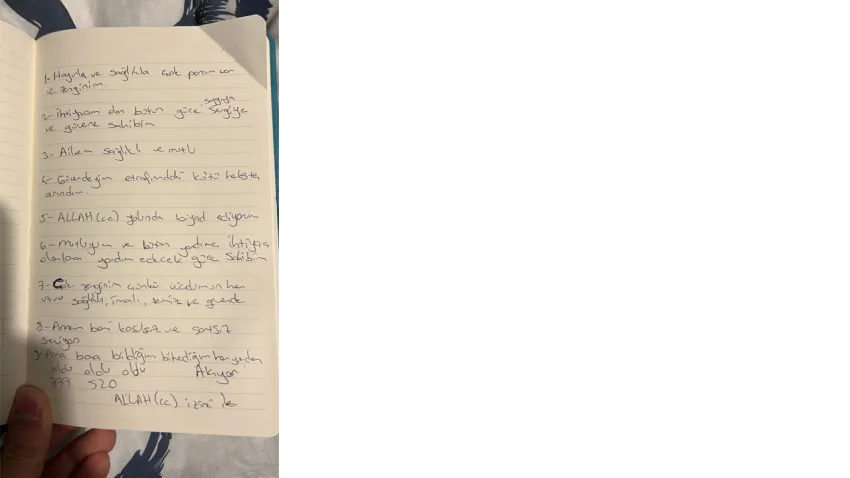 1- Hayırla ve sağlıkla çok param var
ve zenginim.
2- ihtiyacım olan bütün güce saygıya Sevgiye
ve güvene sahibim
3- Ailem sağlıklı ve mutlu
4- Güvendeyim etrafımdaki kötü
arındım.
5- ALLAH (cc) yolunda ediyorum
6- mutluyum ve bütün yardıma ihtiyacı
olanlara yardım edecek güce Sahibim
7- Çok zenginim çünkü vücudumun her
sağlıklı, imanlı, temiz ve güvende
8- Annem beni ve
seviyor
9- Para bana bildiğim bilmediğim her yerden
oldu oldu oldu Akıyor
777 520
ALLAH (cc) izni ile